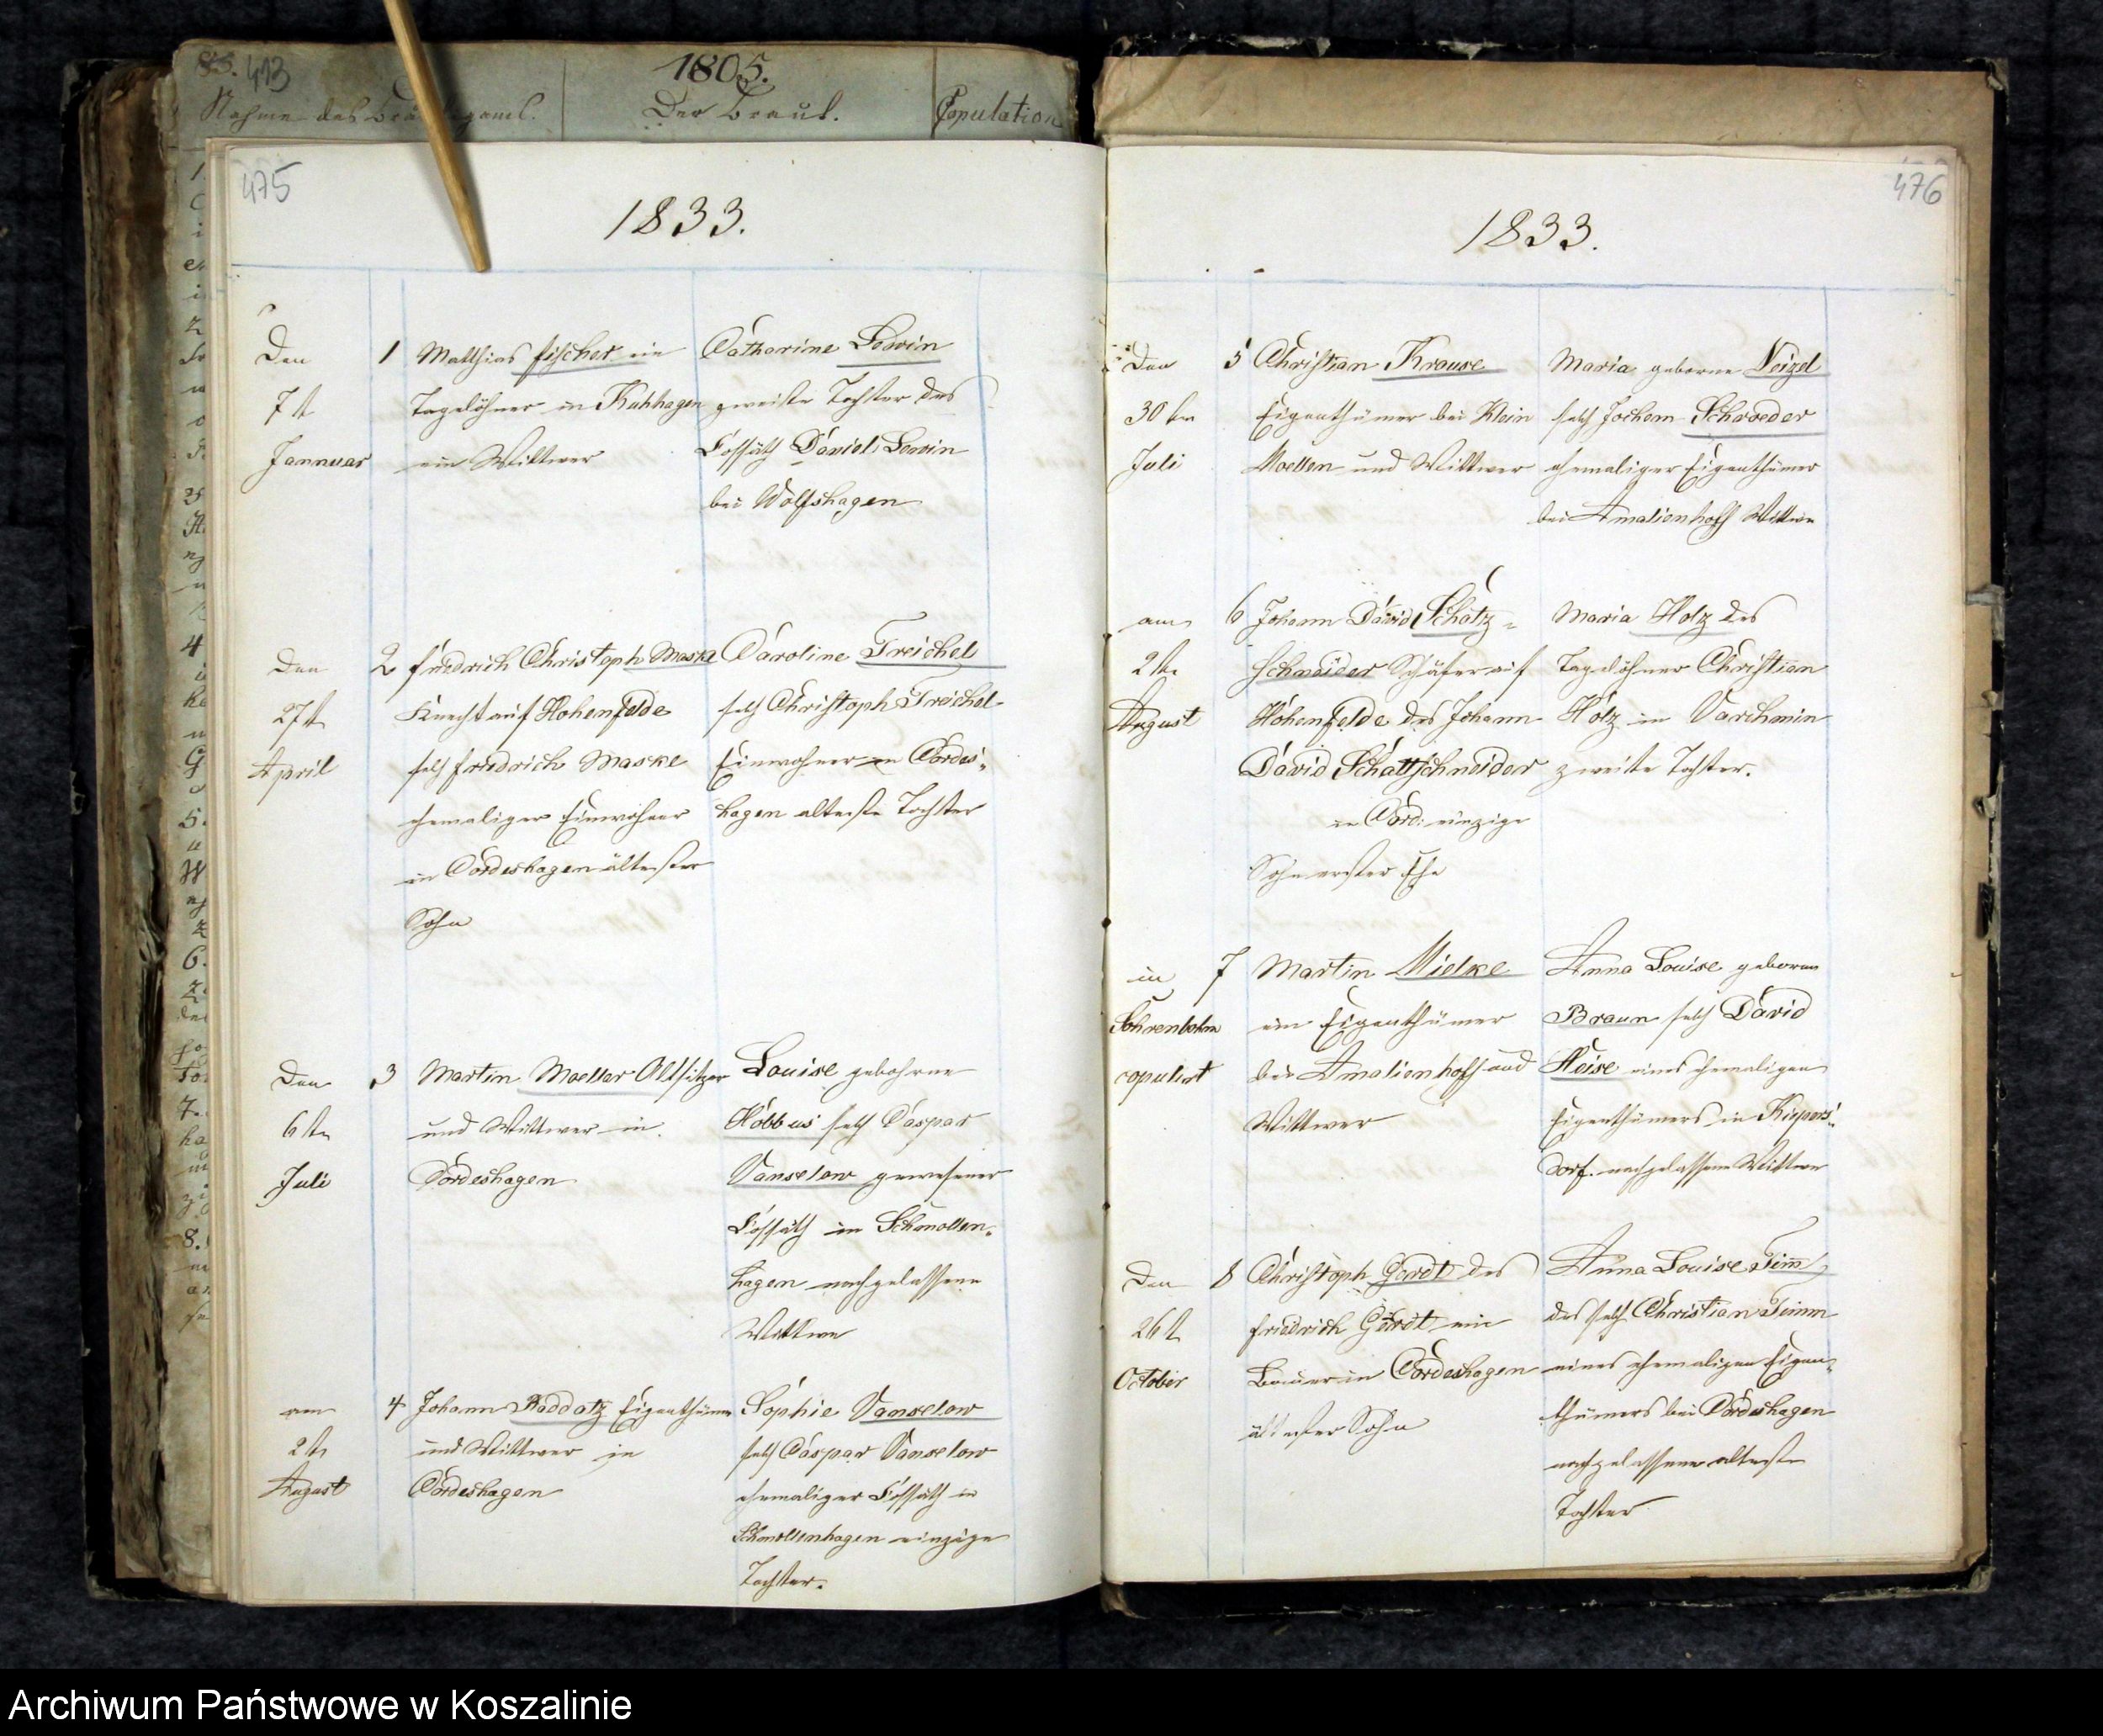 413
1805.
Nahme des Bräutigams.
Der Braut.
Copulation
475
1833.
Den
7t
Jannuar
1
Matthias Fischer ein
Tagelöhner in Kuhhagen
ein Wittwer
Catharine Lewin
zweiste Tochter des
Cossäth Daniel Lewin
bei Wolfshagen
Den
27t
April
2
Friedrich Christoph Maske
Knecht auf Hohenfelde
sel Friedrich Maske
ehemaliger Einwohner
in Cordeshagen ältester
Sohn
Caroline Treichel
sel Christoph Treichel
Einwohner in Cordes-
hagen alteste Tochter
Den
6tn
Juli
3
Martin Moeller Altsitzer
und Wittwer in
Cordeshagen
Louise gebohrne
sel Caspar
Vanselow gewesener
Cossäth in Schmollen-
hagen nachgelassene
Wittwe
am
2tn
August
4
Johann Raddatz Eigenthümer
und Wittwer in
Cordeshagen
Sophie Vanselow
sel Caspar Vanselow
ehemaliger Cossäth in
Schmollenhagen einzige
Tochter.
476
1833.
Den
30tn
Juli
5
Christian Krause
Eigenthümer bei Klein
Moellen und Wittwer
Maria geborne
sel Jochem Schroeder
ehemaliger Eigenthümer
bei Amalienhoff Wittwe
am
2tn
August
6
Johann David Schatz-
schneider Schäfer auf
Hohenfelde des Johann
David Schattschneider
in Cord: einzige
Sohn erster Ehe
Maria Holz des
Tagelöhner Christian
Holz in Varchmin
zweite Tochter.
in
Sohrenbohm
copulirt
7
Martin Mielke
ein Eigenthümer
bei Amalienhoff und
Wittwer
Anna Louise geboren
Braun sel David
Heise eines ehemaligen
Eigenthümers in Kiepers-
dorf nachgelassene Wittwe
Den
26t
October
8
Christoph Gerdt des
Friedrich Gerdt ein
Bauer in Cordeshagen
ältester Sohn
Anna Louise Timm
des sel Christian Timm
eines ehemaligen Eigen-
thümers bei Cordeshagen
nachgelassene alteste
Tochter
Archiwum Państwowe w Koszalinie